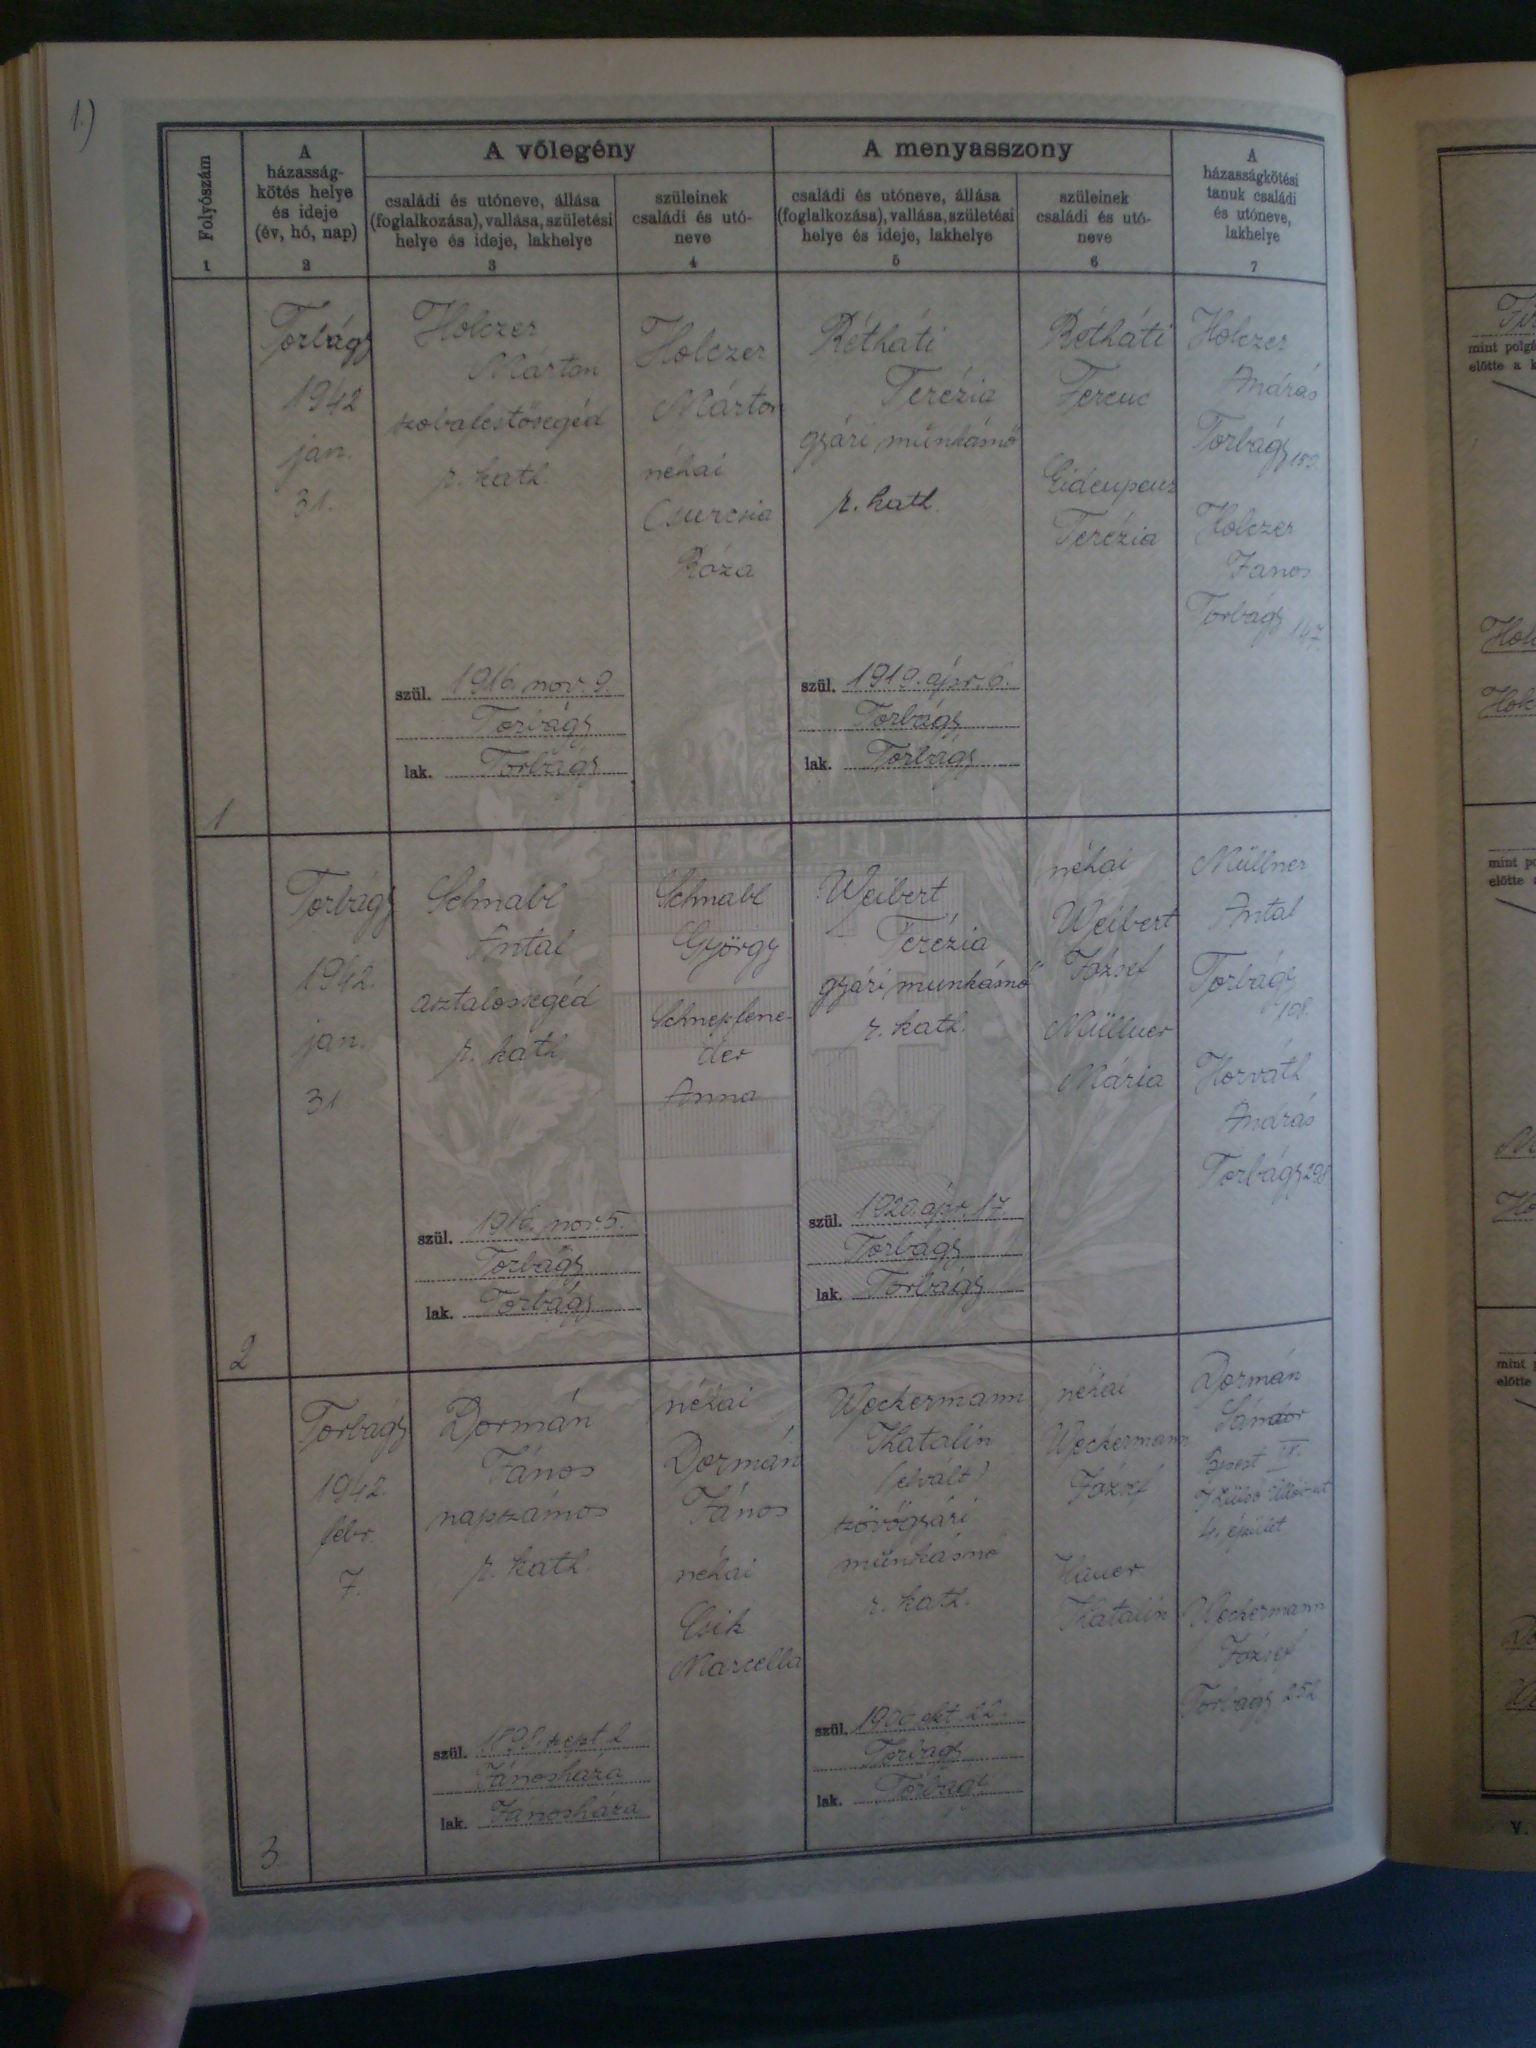 1.)
Folyószám
1
A
házasság-
kötés helye
és ideje
(év, hó, nap)
2
A vőlegény
családi és utóneve, állása
(foglalkozása), vallása, születési
helye és ideje, lakhelye
3
szüleinek
családi és utó-
neve
4
A menyasszony
családi és utóneve, állása
(foglalkozása), vallása, születési
helye és ideje, lakhelye
5
szüleinek
családi és utó-
neve
6
A
házasságkötési
tanuk családi
és utóneve,
lakhelye
7
1
Torbágy
1942
jan.
31.
Holczer
Márton
szobafestősegéd
r. kath.
szül. 1916. nov. 9.
Torbágy
lak. Torbágy
Holczer
Márton
néhai
Csurcsia
Róza
Rétháti
Terézia
gyári munkásnő
r. kath.
szül. 1919. ápr. 6.
Torbágy
lak. Torbágy
Rétháti
Ferenc
Terézia
Holczer
András
Torbágy
Holczer
János
Torbágy 147.
2
Torbágy
1942.
jan.
31
Schnabl
Antal
asztalossegéd
r. kath.
szül. 1916. nov. 5.
Torbágy
lak. Torbágy
Schnabl
György
Schneplene-
der
Anna
Weibert
Terézia
gyári munkásnő
r. kath.
szül. 1920. ápr. 17
Torbágy
lak. Torbágy
néhai
Weibert
József
Müllner
Mária
Müllner
Antal
Torbágy
108.
Horváth
András
Torbágy 298
3
Torbágy
1942.
febr.
7.
Dormán
János
napszámos
r. kath.
szül. 1898. szept. 2
Jánosháza
lak. Jánosháza
néhai
Dormán
János
néhai
Csik
Marcella
Weckermann
Katalin
(elvált)
szövőgyári
munkásnő
r. kath.
szül. 1900. okt. 22.
Torbágy
lak. Torbágy
néhai
Weckermann
József
Hauer
Katalin
Dormán
Sándor
Bpest IX.
Külső Üllői-út
4. épület
Weckermann
József
Torbágy 252
mint
előtte a
mint
előtte
mint
előtte
V.